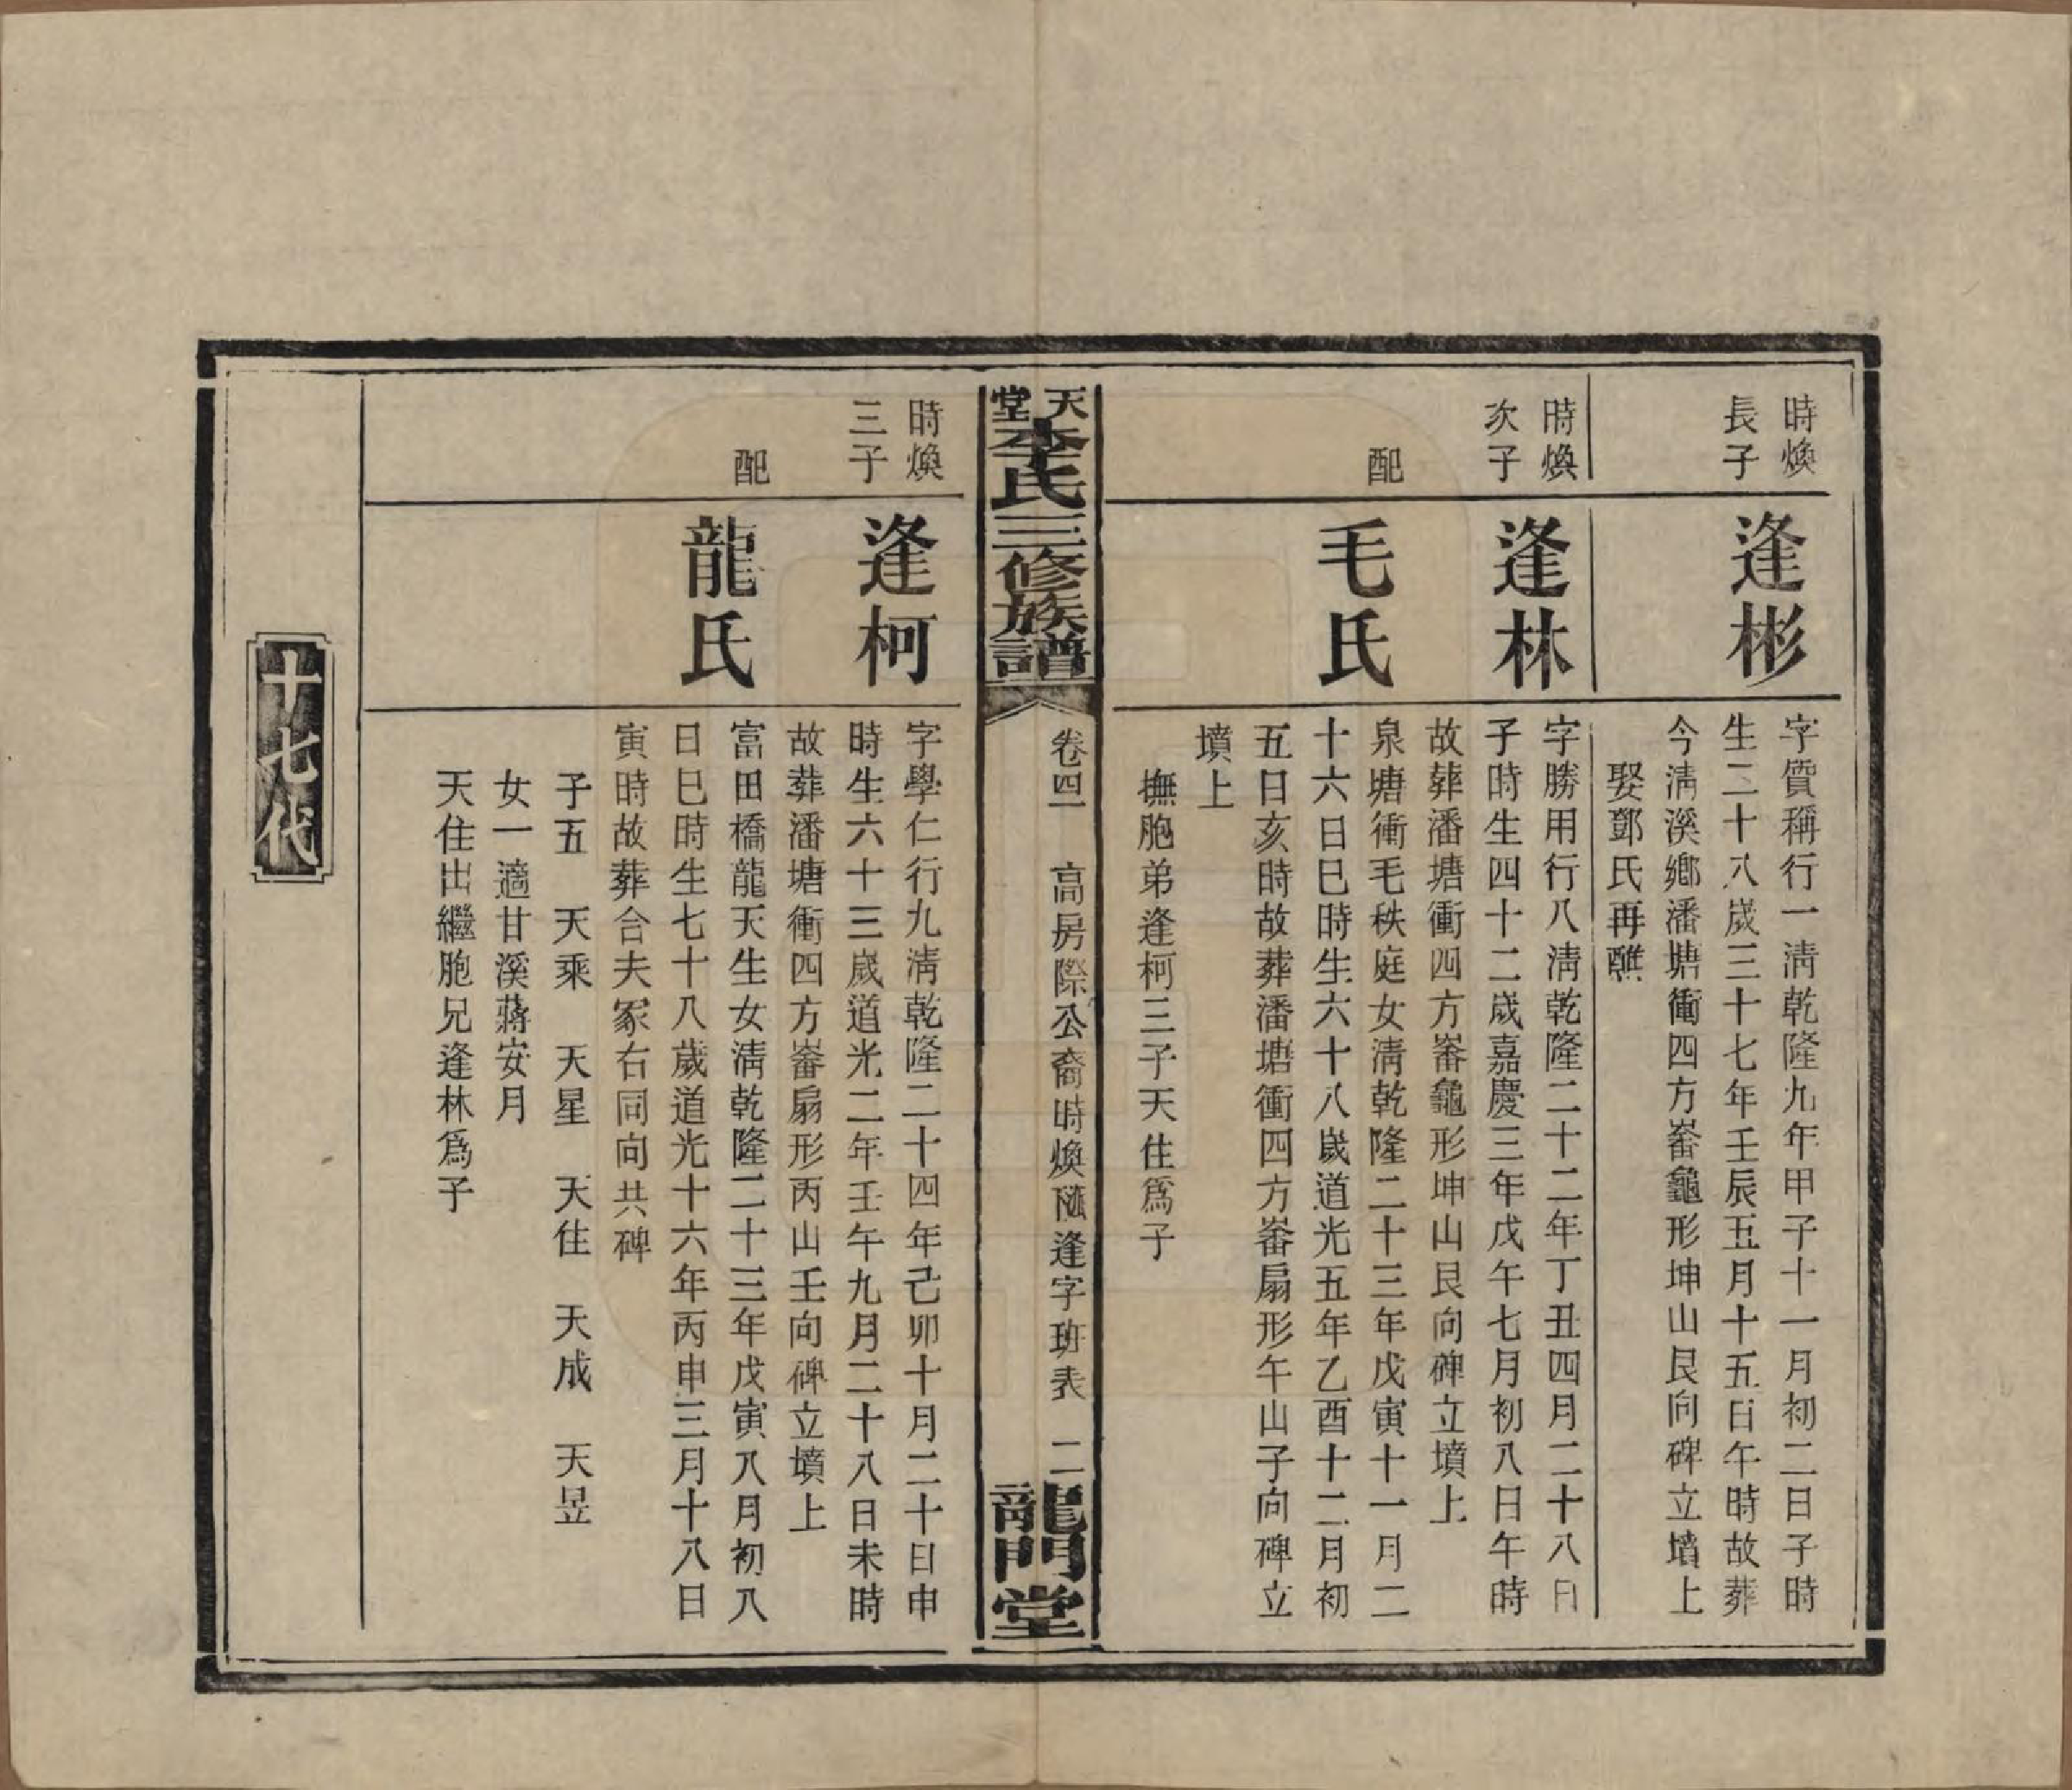 時煥
長子
逢彬
字質稱行一淸乾隆九年甲子十一月初二日子時
生二十八歲三十七年壬辰五月十五日午時故葬
今淸溪鄕潘塘衝四方崙龜形坤山艮向碑立墳上
娶鄧氏再醮
時煥
次子
逢林
字勝用行八淸乾隆二十二年丁丑四月二十八日
子時生四十二歲嘉慶三年戊午七月初八日午時
故葬潘塘衝四方崙龜形坤山艮向碑立墳上
配
毛氏
泉塘衝毛秩庭女淸乾隆二十三年戊寅十一月二
十六日巳時生六十八歲道光五年乙酉十二月初
五日亥時故葬潘塘衝四方崙扇形午山子向碑立
墳上
撫胞弟逢柯三子天住爲子
天堂李氏三修族譜
卷四 高房際公裔時煥 逢字班表 二
龍門堂
時煥
三子
逢柯
字學仁行九淸乾隆二十四年己卯十月二十日申
時生六十三歲道光二年壬午九月二十八日未時
故葬潘塘衝四方崙扇形丙山壬向碑立墳上
配
龍氏
富田橋龍天生女淸乾隆二十三年戊寅八月初八
日巳時生七十八歲道光十六年丙申三月十八日
寅時故葬合夫冢右同向共碑
子五 天乘 天星 天住 天成 天昱
女一適甘溪蔣安月
天住出繼胞兄逢林爲子
十七代